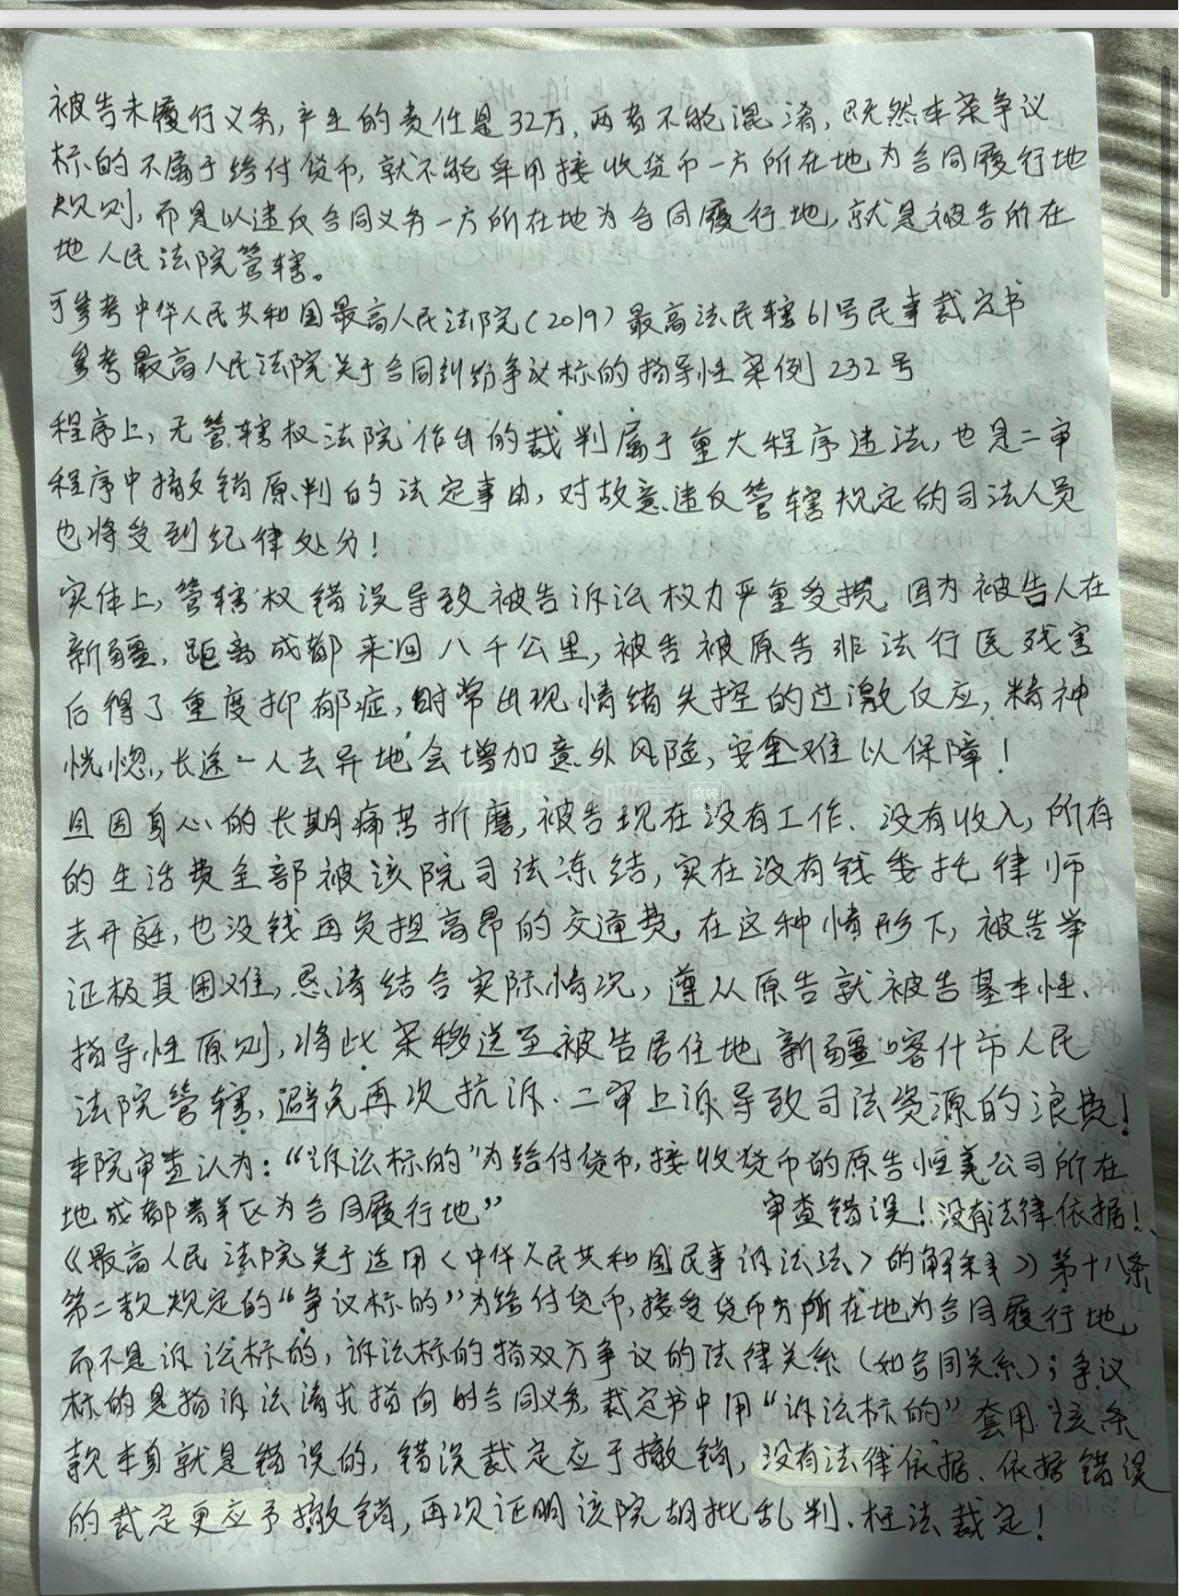 被告未履行义务,产生的责任是32万,两者不能混淆,既然本案争议
标的不属于给付货币,就不能采用接收货币一方所在地为合同履行地
规则,而是以违反合同义务一方所在地为合同履行地,就是被告所在
地人民法院管辖。
可参考中华人民共和国最高人民法院(2019)最高法民辖61号民事裁定书
参考最高人民法院关于合同纠纷争议标的指导性案例232号
程序上,无管辖权法院作出的裁判属于重大程序违法,也是二审
程序中撤销原判的法定事由,对故意违反管辖规定的司法人员
也将受到纪律处分!
实体上,管辖权错误导致被告诉讼权力严重受损,因为被告人在
新疆,距离成都来回八千公里,被告被原告非法行医残害
后得了重度抑郁症,时常出现情绪失控的过激反应,精神
恍惚,长途一人去异地会增加意外风险,安全难以保障!
且因身心的长期痛苦折磨,被告现在没有工作、没有收入,所有
的生活费全部被该院司法冻结,实在没有钱委托律师
去开庭,也没钱再负担高昂的交通费。在这种情形下,被告举
证极其困难,恳请结合实际情况,遵从原告就被告基本性、
指导性原则,将此案移送至被告居住地新疆喀什市人民
法院管辖,避免再次抗诉、二审上诉导致司法资源的浪费!
本院审查认为:“诉讼标的”为给付货币,接收货币的原告恒美公司所在
地成都青羊区为合同履行地” 审查错误!没有法律依据!
《最高人民法院关于适用〈中华人民共和国民事诉讼法〉的解释》第十八条
第二款规定的“争议标的”为给付货币,接受货币方所在地为合同履行地,
而不是诉讼标的,诉讼标的指双方争议的法律关系(如合同关系);争议
标的是指诉讼请求指向的合同义务,裁定书中用“诉讼标的”套用该条
款本身就是错误的,错误裁定应于撤销,没有法律依据、依据错误
的裁定更应予撤销,再次证明该院胡批乱判、枉法裁定!